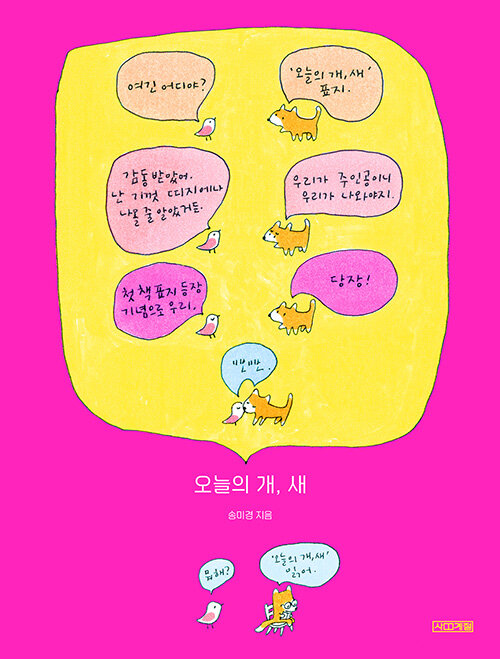 여긴 어디야?
'오늘의 개, 새'
표지.
감동 받았어.
난 기껏 띠지에나
나올 줄 알았거든.
우리가 주인공이니
우리가 나와야지.
첫 책 표지 등장
기념으로 우리,
당장!
이번만.
오늘의 개, 새
송미경 지음
뭐해?
'오늘의 개, 새'
읽어.
사계절